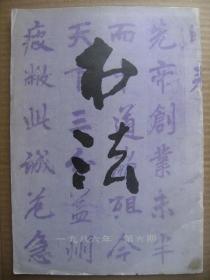 先帝創業未半
而　道　殂今
天下三　益州
疲敝此誠危急
书法
一九八六年　第六期